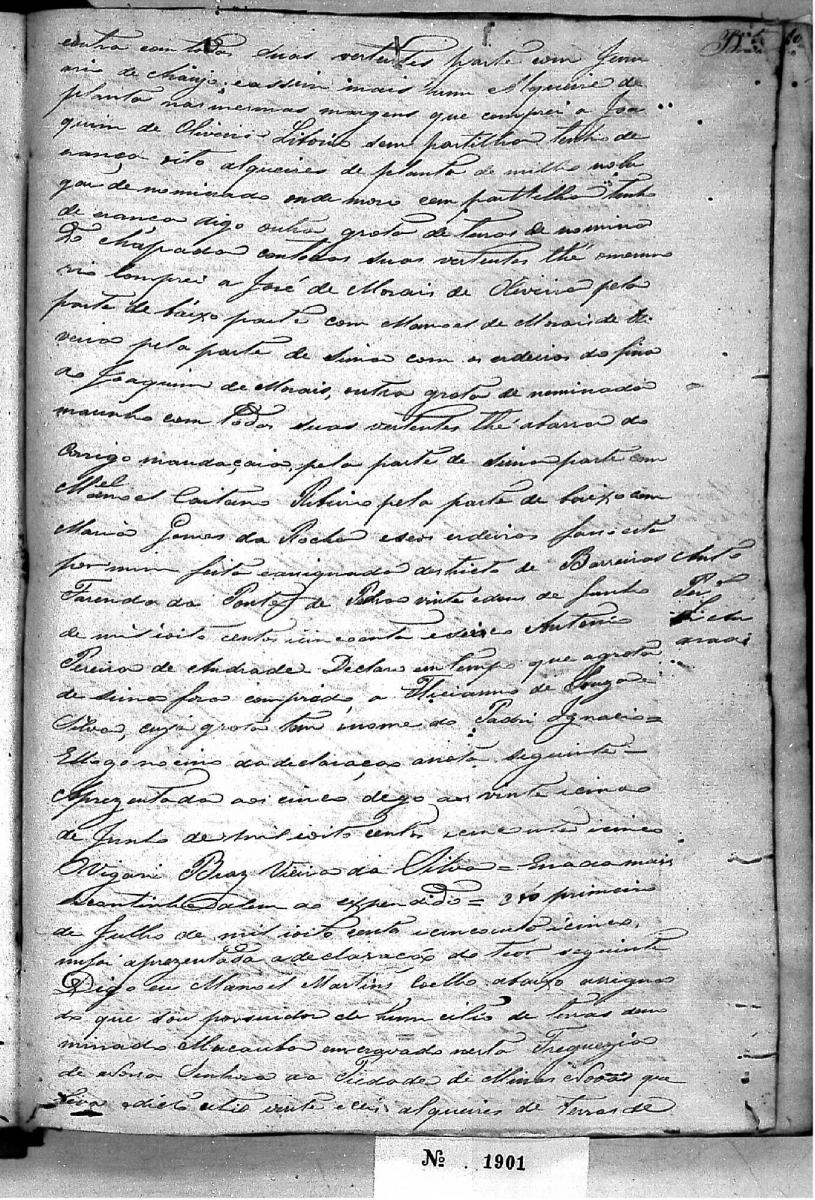 outra com todas suas vertentes parte com Jenu
ario de Araujo, e assim mais hum Alqueire de
planta nas mesmas margens que comprei a Joa
quim de Oliveira Litorio sem partilha tenho de
erança oito alqueires de planta de milho no lu
gar denominado onde moro com partilha tenho
de erança digo outra grota de terras denomina
da chapada com todas suas vertentes thé
comprei a José de Morais de Oliveira pela
parte de baixo parte com Manoel de Morais de Oli
veira pela parte de sima com os erdeiros do fina
do Joaquim de Morais, outra grota denominada
marinho com todas suas vertentes thé abarra do
Corrigo mandaçaia, pela parte de sima parte com
Manoel Caitano Ribeiro pela parte de baixo com
Maria Gomes da Rocha eseos erdeiros
por mim feita easignada destricto de Barreiras
Fazenda da Ponte de Pedra vinte e dous de Junho
de mil oito centos cincoenta e sinco Antonio
Pereira de Andrade Declaro em tempo que agrota
de sima foi comprada a Feliciano de Souza e
Silva, cuja grota tem o nome do Padre Ignacio =
da declaração aneta seguinte =
Aprezentada aos cinco digo aos vinte icinco
de Junho de mil oito centos icincoenta icinco
O Vigario Braz Vieira da Silva = Enada mais
secontinha alem do expendido = primeiro
de Julho de mil oito cento icincoenta icinco,
mefoi aprezentada adeclaração do teor seguinte
Digo eu Manoel Martins Coelho abaixo assigna
do que sou possuidor de hum citio de terras deno
minado Macauba nesta Freguezia
de nossa Senhora da Piedade de Minas Novas que
leva odito citio vinte e ceis alqueires de terras de
Antº
Per.ª
de An
drade
Nº 1901